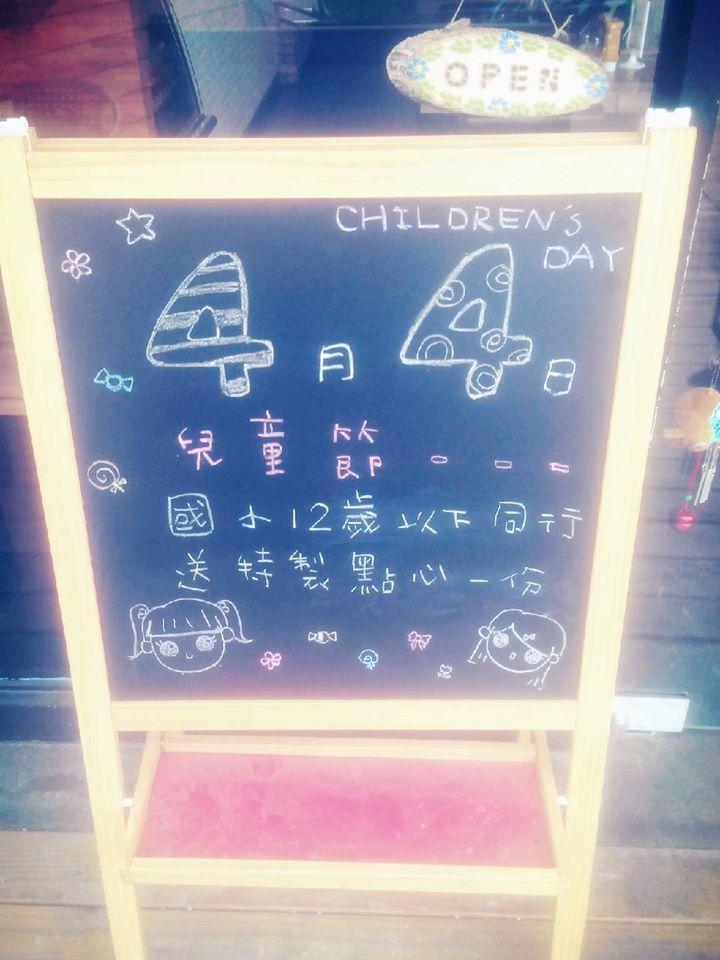 OPEN
CHILDREN'S
DAY
4月4日
兒童節---
國小12歲以下同行
送特製點心一份